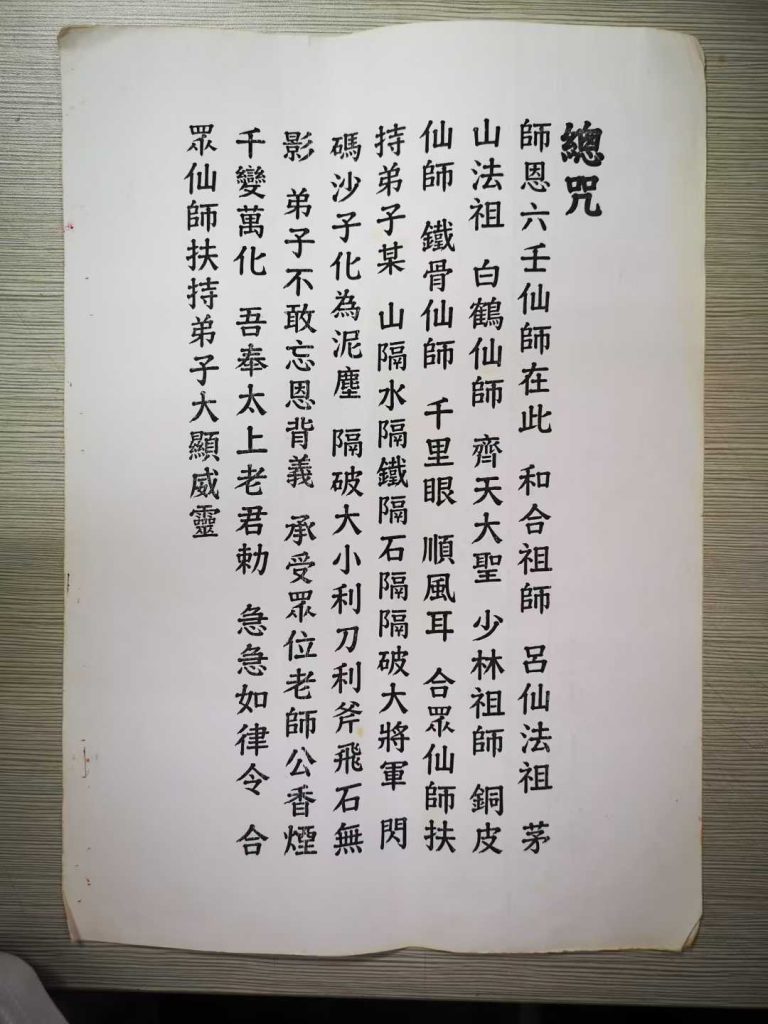 總咒
師恩六壬仙師在此 和合祖師 呂仙法祖 茅
山法祖 白鶴仙師 齊天大聖 少林祖師 銅皮
仙師 鐵骨仙師 千里眼 順風耳 合眾仙師扶
持弟子某 山隔水隔鐵隔石隔隔破大將軍 閃
碼沙子化為泥塵 隔破大小利刀利斧飛石無
影 弟子不敢忘恩背義 承受眾位老師公香煙
千變萬化 吾奉太上老君勅 急急如律令 合
眾仙師扶持弟子大顯威靈